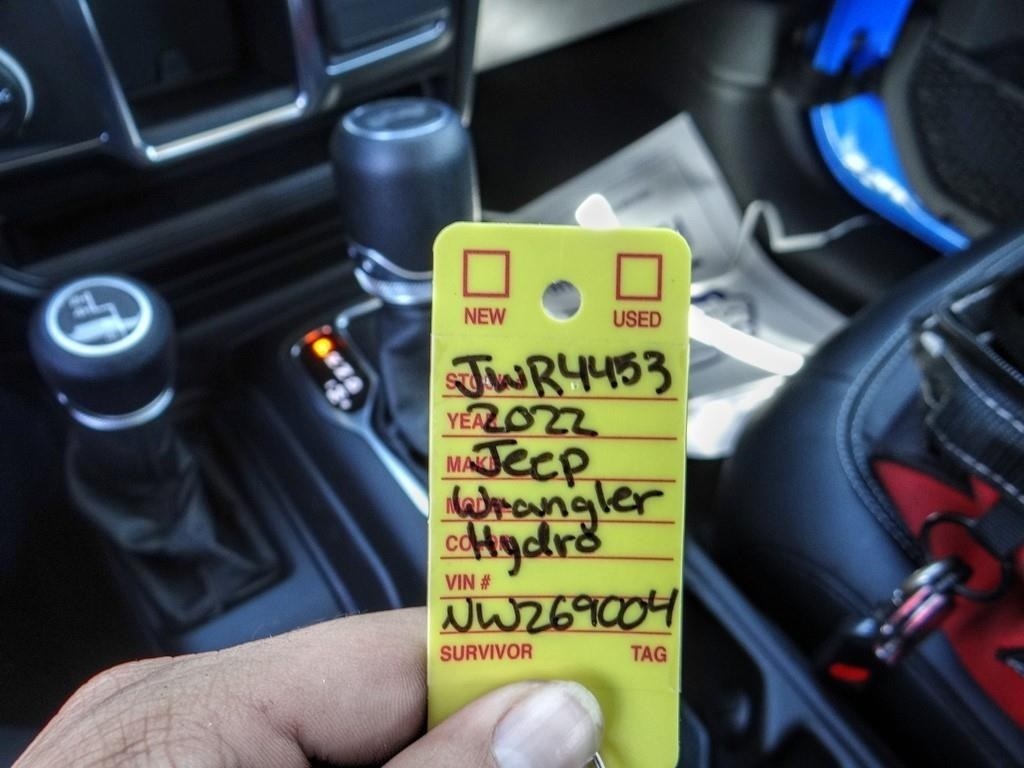 NEW USED
STOCK# JWR4453
YEAR 2022
MAKE Jeep
MODEL Wrangler
COLOR Hydro
VIN #
NW269004
SURVIVOR TAG